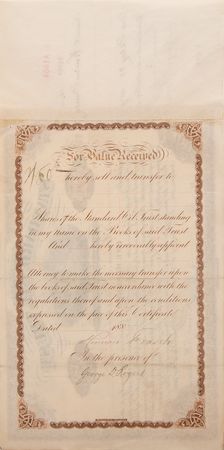 For Value Received
hereby sell and transfer to
Shares of the Standard Oil Trust standing
in my name on the Books of said Trust
And hereby irrevocably appoint
Attorney to make the necessary transfer upon
the books of said Trust in accordance with the
regulations thereof and upon the conditions
expressed on the face of this Certificate
Dated 188
In the presence of
George D Rogers